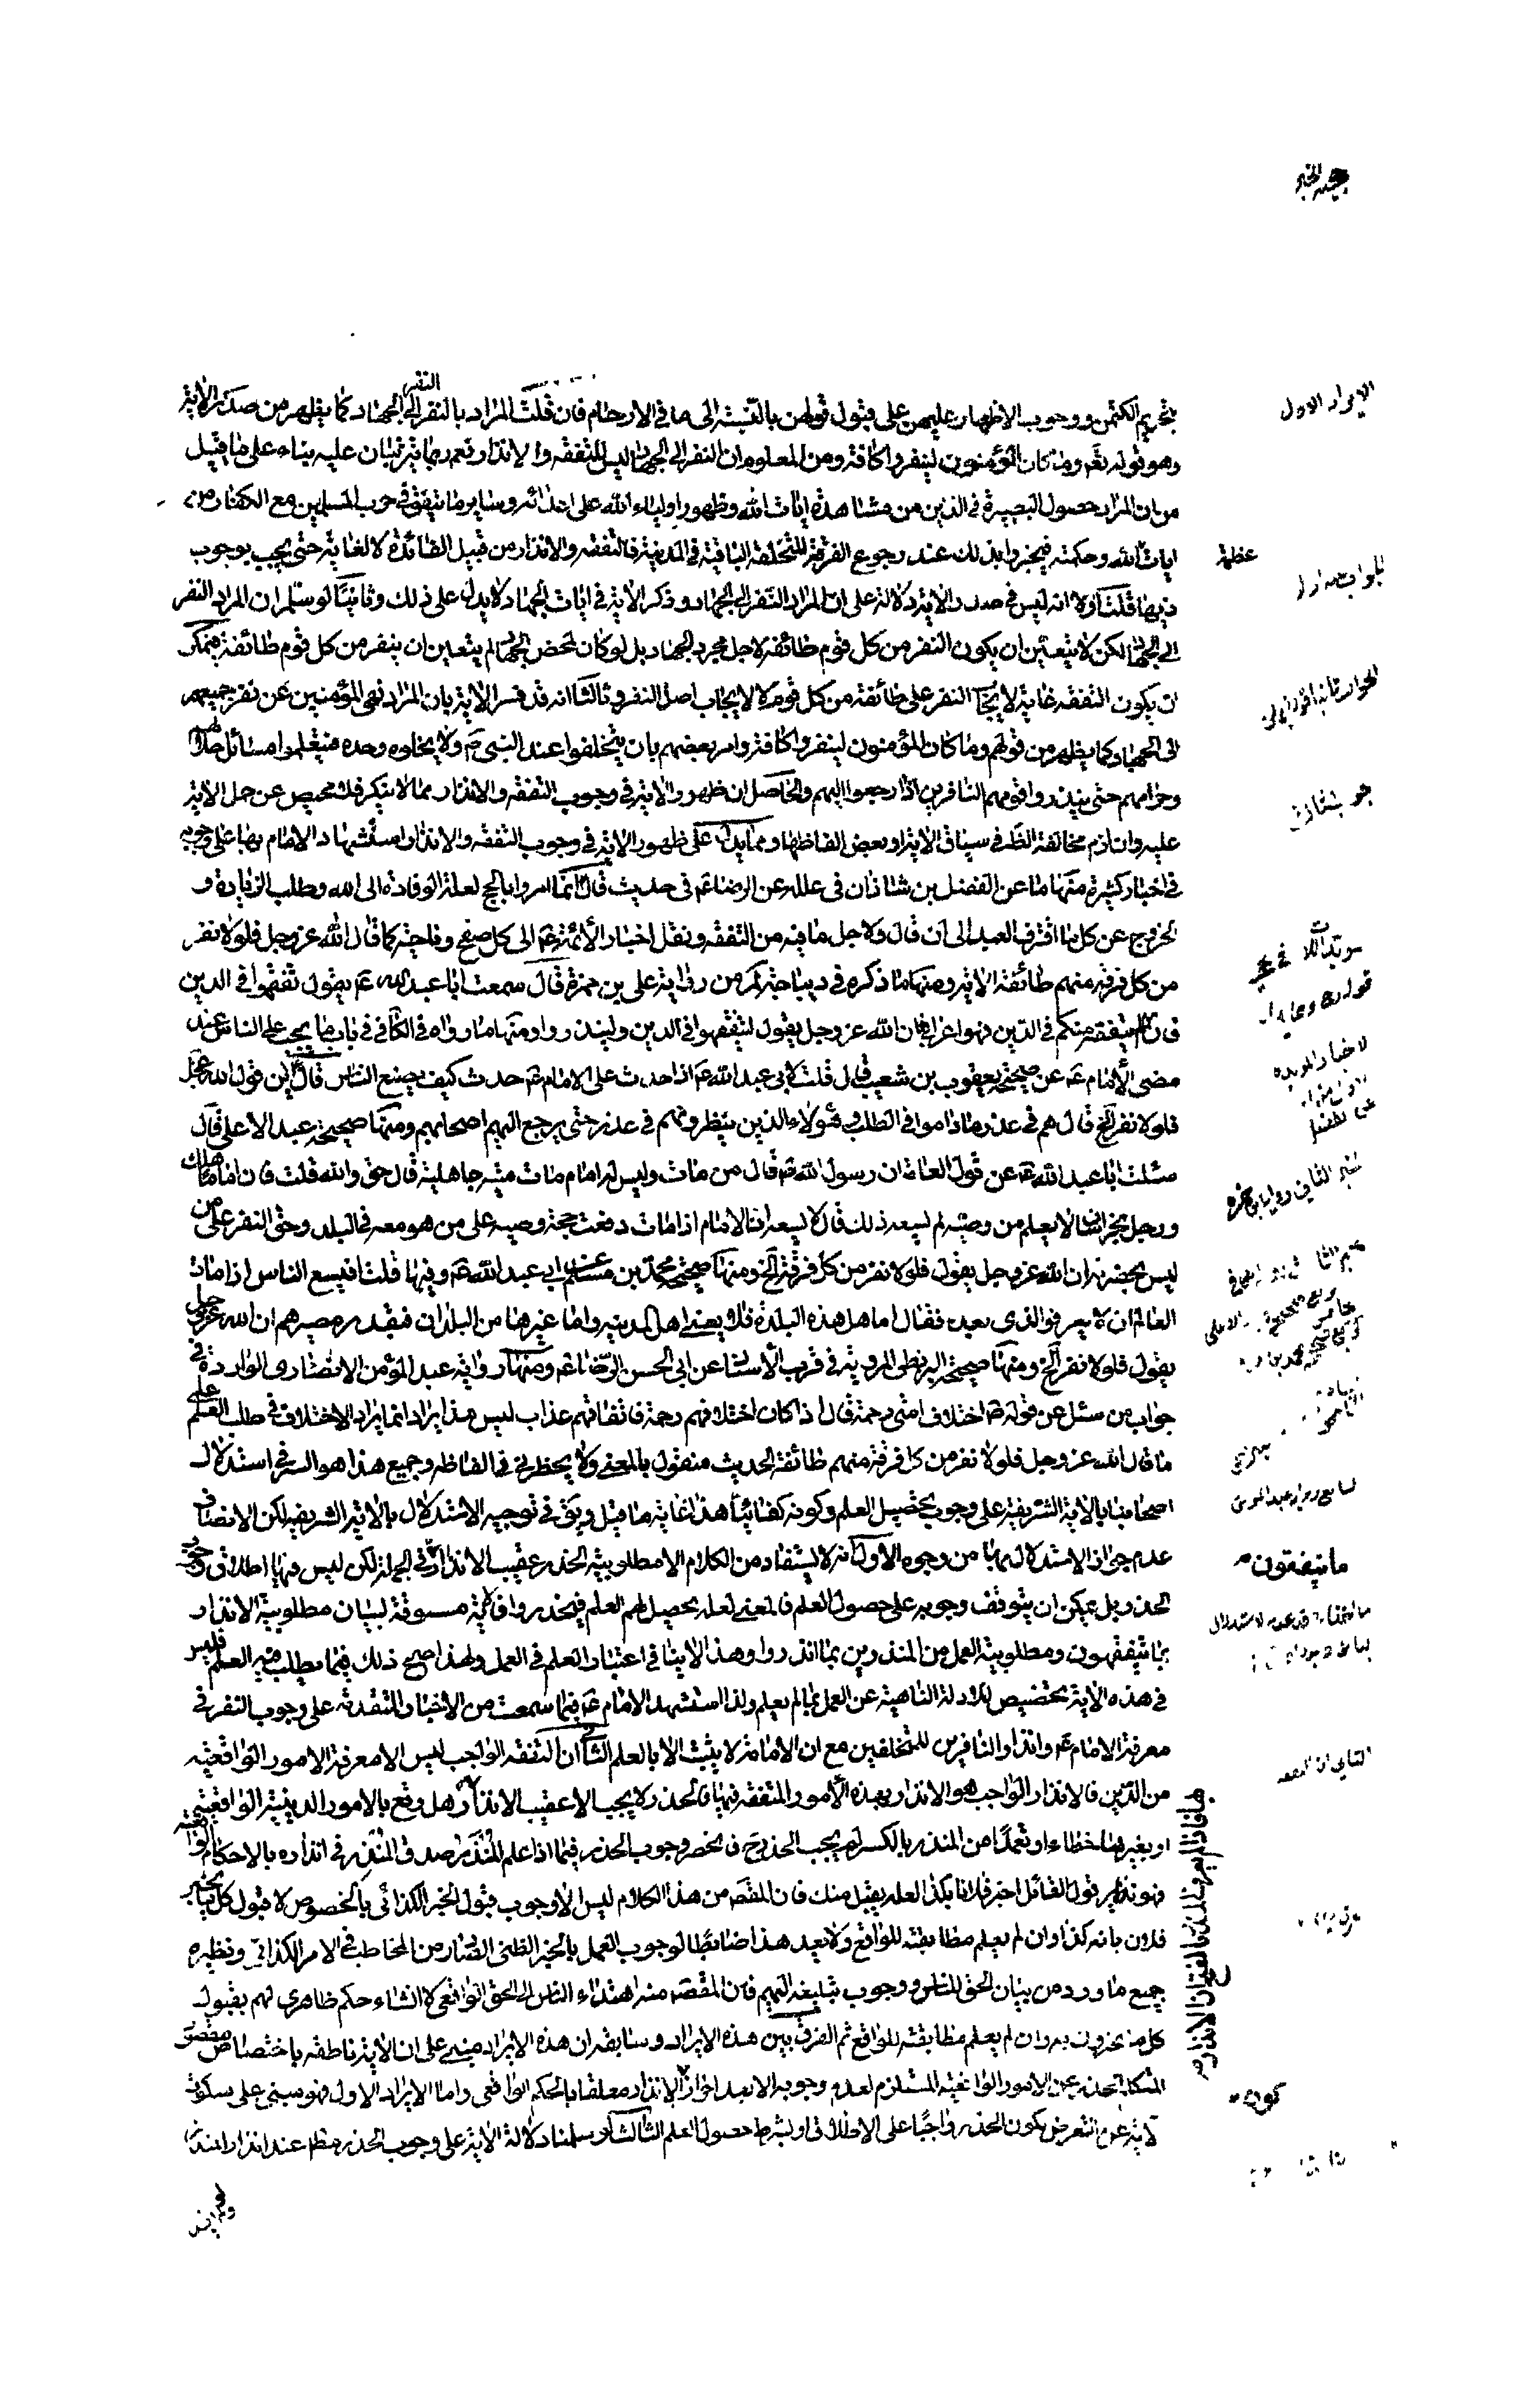 حجية الخبر
بتحريم الكتمن ووجوب الاظهار عليهن على قبول قولهن بالنسبة الى ما فى الارحام فان قلت المراد بالنفر النفر الى الجهاد كما يظهر من صدر الاية
وهو قوله تعم وما كان المؤمنون لينفروا كافة ومن المعلوم ان النفر الى الجهاد ليس للتفقه والانذار نعم ربما يترتبان عليه بناء على ما قيل
من ان المراد حصول البصيرة فى الدين من مشاهدة ايات الله وظهور اولياء الله على اعدائه وساير ما يتفق فى حرب المسلمين مع الكفار من
ايات الله وحكمته فيخبروا بذلك عند رجوع الفرقة المتخلفة الباقية فى المدينة فالتفقه والانذار من قبيل الفائدة لا الغاية حتى يجب بوجوب
ذيها قلت اولا انه ليس فى صدر الاية دلالة على ان المراد النفر الى الجهاد وذكر الاية فى ايات الجهاد لا يدل على ذلك وثانيا لو سلم ان المراد النفر
الى الجهاد لكن لا يتعين ان يكون النفر من كل قوم طائفة لاجل مجرد الجهاد بل لو كان لمحض الجهاد لم يتعين ان ينفر من كل قوم طائفة فيمكن
ان يكون التفقه غاية لايجاب النفر على طائفة من كل قوم لا لايجاب اصل النفر وثالثا انه قد فسر الاية بان المراد نهى المؤمنين عن نفر جميعهم
الى الجهاد كما يظهر من قوله وما كان المؤمنون لينفروا كافة وامر بعضهم بان يتخلفوا عند النبى ص ولا يخلوه وحده فيتعلموا مسائل حلالهم
وحرامهم حتى ينذروا قومهم النافرين اذا رجعوا اليهم والحاصل ان ظهور الاية فى وجوب التفقه والانذار مما لا ينكر فلا محيص عن حمل الاية
عليه وان لزم مخالفة الظ فى سياق الاية او بعض الفاظها ومما يدل على ظهور الاية فى وجوب التفقه والانذار استشهاد الامام بها على وجوبه
فى اخبار كثيرة منها ما عن الفضل بن شاذان فى علله عن الرضا ع فى حديث قال انما امروا بالحج لعلة الوفادة الى الله وطلب الزيادة و
الخروج عن كل ما اقترف العبد الى ان قال ولاجل ما فيه من التفقه ونقل اخبار الائمة ع الى كل صقع وناحية كما قال الله عز وجل فلولا نفر
من كل فرقة منهم طائفة الاية ومنها ما ذكره فى ديباجة لم من رواية على بن حمزة قال سمعت ابا عبد الله ع يقول تفقهوا فى الدين
فان من لم يتفقه منكم فى الدين فهو اعرابى ان الله عز وجل يقول ليتفقهوا فى الدين ولينذروا ومنها ما رواه فى الكافى فى باب ما يجب على الناس عند
مضى الامام ع عن صحيحة يعقوب بن شعيب قال قلت لابى عبد الله ع اذا حدث على الامام ع حدث كيف يصنع الناس قال اين قول الله عز وجل
فلولا نفر الخ قال هم فى عذر ما داموا فى الطلب وهؤلاء الذين ينتظرونهم فى عذر حتى يرجع اليهم اصحابهم ومنها صحيحة عبد الاعلى قال
سئلت ابا عبد الله ع عن قول العامة ان رسول الله ص قال من مات وليس له امام مات ميتة جاهلية قال حق والله قلت فان اماما هلك
ورجل بخراسان لا يعلم من وصيه لم يسعه ذلك قال لا يسعه ان الامام اذا مات دفعت حجة وصيه على من هو معه فى البلد وحق النفر على من
ليس بحضرته ان الله عز وجل يقول فلولا نفر من كل فرقة الخ ومنها صحيحة محمد بن مسلم عن ابى عبد الله ع وفيها قلت افيسع الناس اذا مات
العالم ان لا يعرفوا الذى بعده فقال اما اهل هذه البلدة فلا يعنى اهل المدينة واما غيرها من البلدان فبقدر مسيرهم ان الله عز وجل
يقول فلولا نفر الخ ومنها صحيحة البزنطى المروية فى قرب الاسناد عن ابى الحسن الرضا ع ومنها رواية عبد المؤمن الانصارى الواردة فى
جواب من سئل عن قوله ص اختلاف امتى رحمة قال اذا كان اختلافهم رحمة فاتفاقهم عذاب ليس هذا يراد انما يراد الاختلاف فى طلب العلم على
ما قال الله عز وجل فلولا نفر من كل فرقة منهم طائفة الحديث منقول بالمعنى ولا يحضرنى فى الفاظه وجميع هذا هو السر فى استدلال
اصحابنا بالاية الشريفة على وجوب تحصيل العلم وكونه كفائيا هذا غاية ما قيل ويق فى توجيه الاستدلال بالاية الشريفة لكن الانصاف
عدم جواز الاستدلال بها من وجوه الاول انه لا يستفاد من الكلام الا مطلوبية الحذر عقيب الانذار فى الجملة لكن ليس فيها اطلاق وجوب
الحذر بل يمكن ان يتوقف وجوبه على حصول العلم فالمعنى لعله يحصل لهم العلم فيحذروا فالاية مسوقة لبيان مطلوبية الانذار
بما يتفقهون ومطلوبية العمل من المنذرين بما انذروا وهذا لا ينافى اعتبار العلم فى العمل ولهذا صح ذلك فيما يطلب فيه العلم فليس
فى هذه الاية تخصيص للادلة الناهية عن العمل بما لم يعلم ولذا استشهد الامام ع فيما سمعت من الاخبار المتقدمة على وجوب النفر فى
معرفة الامام ع وانذار النافرين للمتخلفين مع ان الامامة لا يثبت الا بالعلم الثانى ان التفقه الواجب ليس الا معرفة الامور الواقعية
من الدين فالانذار الواجب هو الانذار بهذه الامور المتفقه فيها فالحذر لا يجب الا عقيب الانذار بها هل وقع بالامور الدينية الواقعية
او بغيرها خطاء او تعمدا من المنذر بالكسر لم يجب الحذر ح فانحصر وجوب الحذر فيما اذا علم المنذر صدق المنذر فى انذاره بالاحكام الواقعية
فهو نظير قول القائل اخبر فلانا بكذا لعله يقبل منك فان المقصود من هذا الكلام ليس الا وجوب قبول الخبر الكذائى بالخصوص لا قبول كل ما يخبر
فلان بانه كذا وان لم يعلم مطابقته للواقع ولا يعد هذا ضابطا لوجوب العمل بالخبر الظنى الصادر من المخاطب فى الامر الكذائى ونظيره
جميع ما ورد من بيان الحق للناس ووجوب تبليغه اليهم فان المقصود منه اهتداء الناس الى الحق الواقعى لا انشاء حكم ظاهرى لهم بقبول
كل ما يخبرون به وان لم يعلم مطابقته للواقع ثم الفرق بين هذه الايراد وسابقه ان هذه الايراد مبنى على ان الاية ناطقة باختصاص مقصود
المتكلم بالحذر عن الامور الواقعية المستلزم لعدم وجوبه الا بعد احراز كون الانذار معلقا بالحكم الواقعى واما الايراد الاول فهو مبنى على سكوت
الاية عن التعرض بكون الحذر واجبا على الاطلاق او بشرط حصول العلم الثالث لو سلمنا دلالة الاية على وجوب الحذر مطلقا عند انذار المنذر
الايراد الاول
عظمة
ما يتفقهون
كون